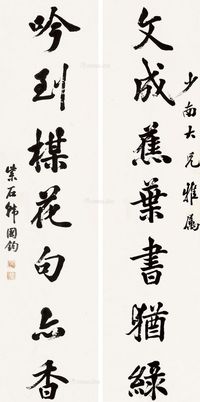 文成蕉葉書猶綠
少南大兄雅屬
吟到楳花句亦香
紫石韓國鈞